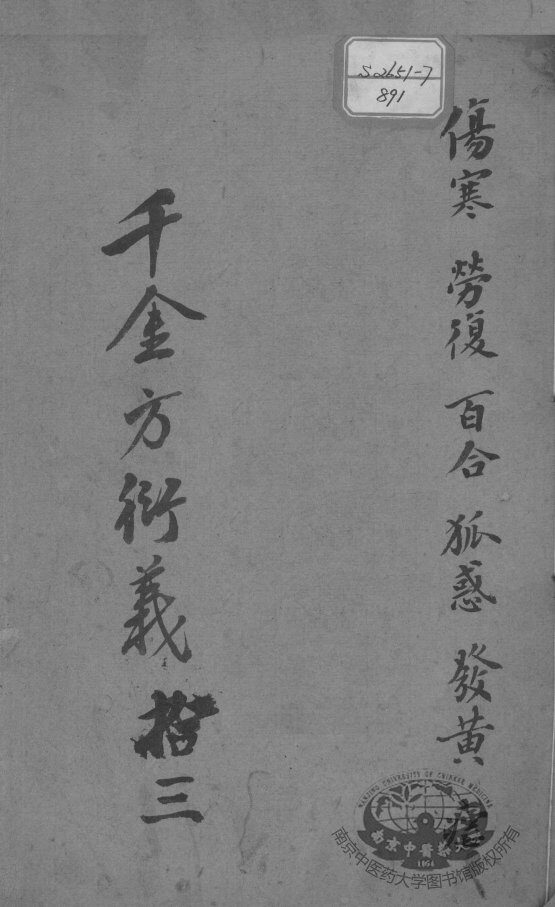 S2651-7
891
傷寒 勞復 百合 狐惑 發黄 瘧
千金方衍義 拾三
NANJING UNIVERSITY OF CHINESE MEDICINE
1954
南京中医药大学图书馆版权所有